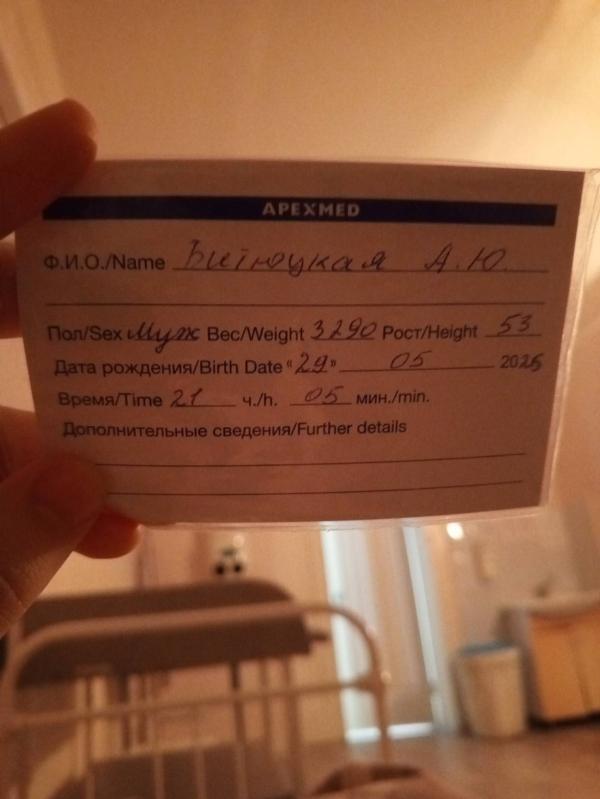 APEXMED
Ф.И.О./Name Битюцкая А.Ю.
Пол/Sex Муж Вес/Weight 3290 Рост/Height 53
Дата рождения/Birth Date "29" 05 2025
Время/Time 21 ч./h. 05 мин./min.
Дополнительные сведения/Further details